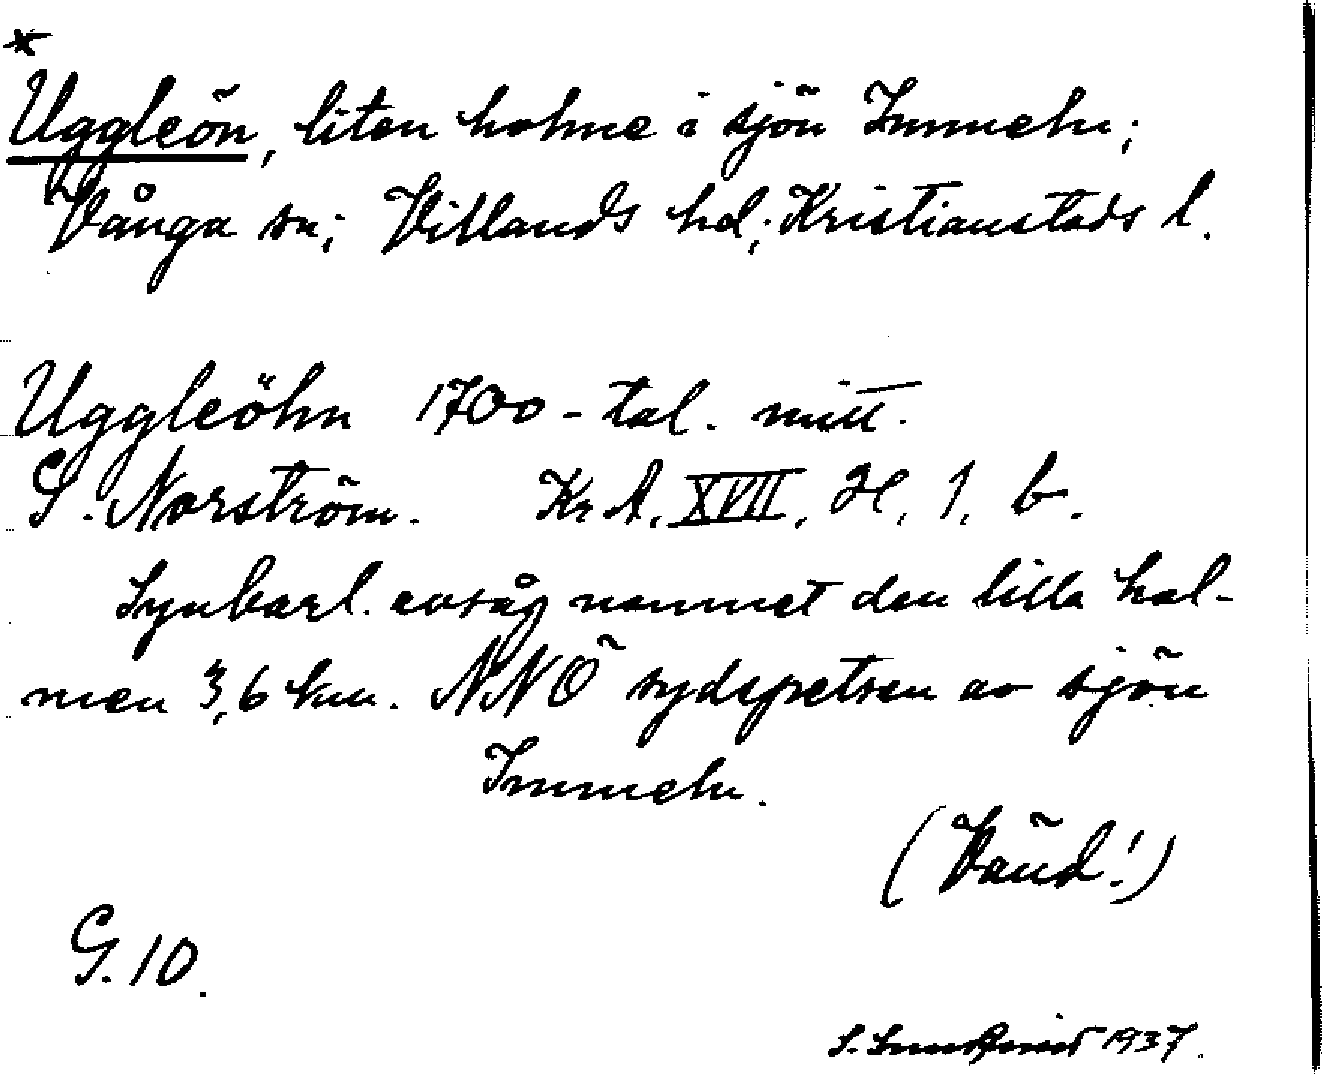 *
Uggleön, liten holme i sjön Immeln;
Vånga sn; Villands hd; Kristianstads l.
Uggleöhn 1700-tal. mitt.
S. Norström. Kr A. XVII, H, 1, b.
Synbarl. avsåg namnet den lilla hol-
men 3,6 km. NNÖ sydspetsen av sjön
Immeln.
(Vänd!)
G. 10.
S. 1937.